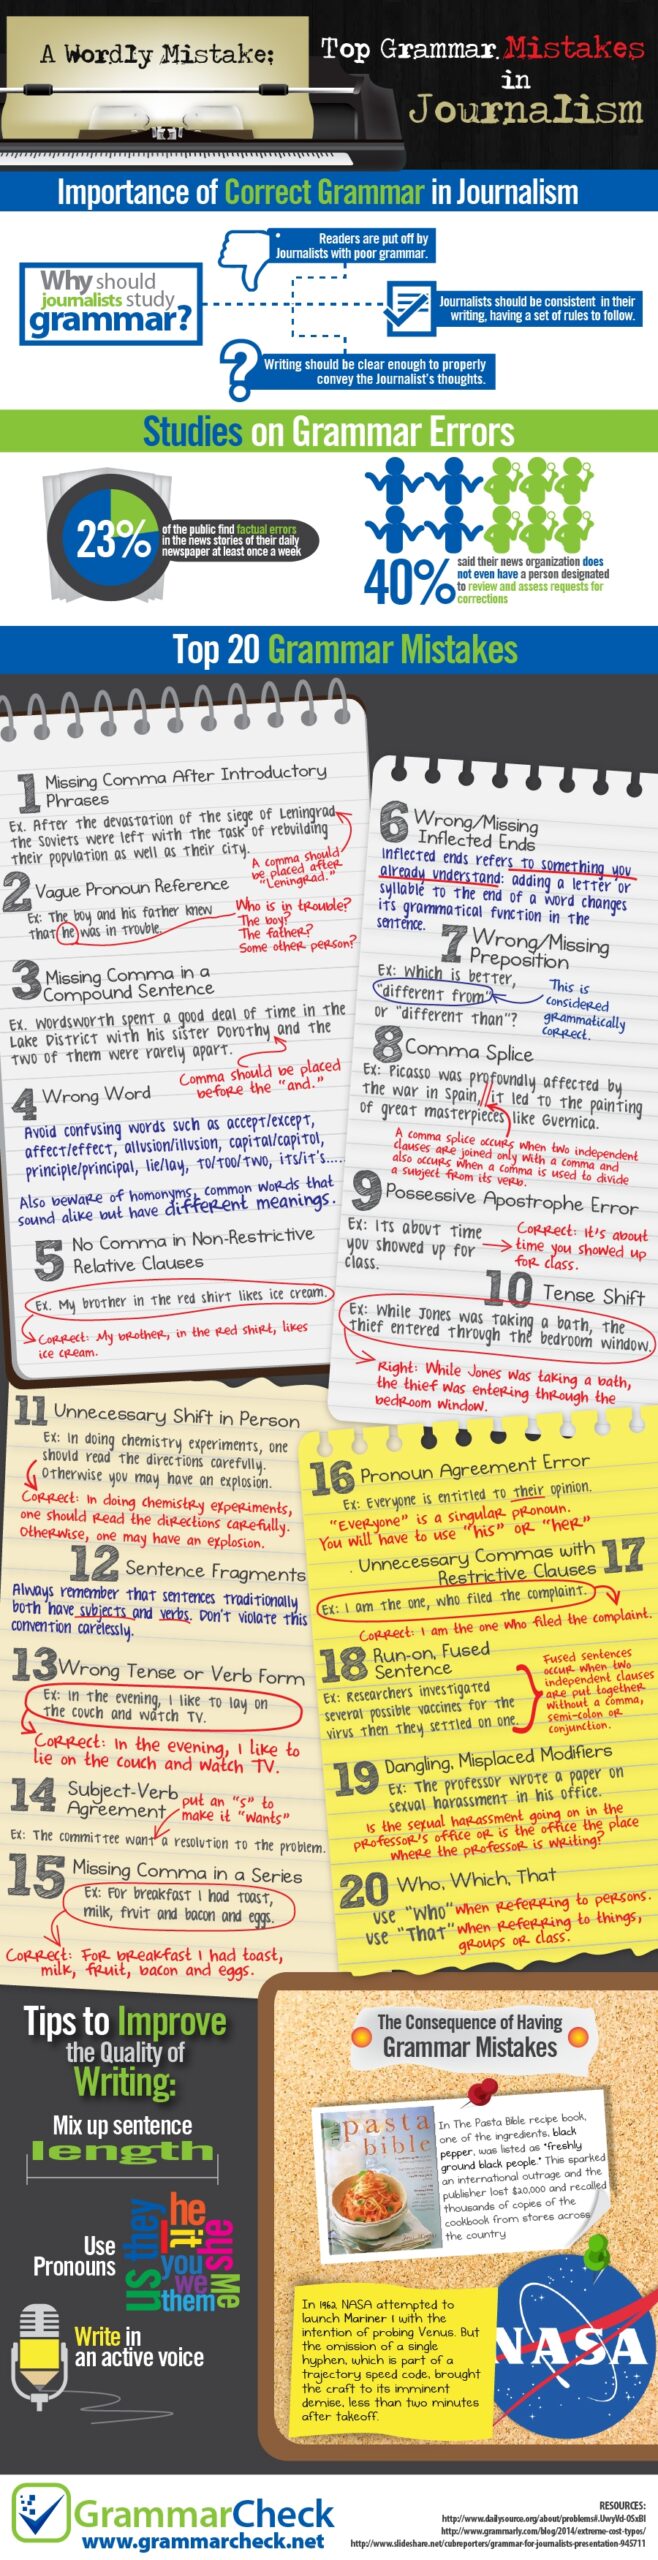 A Wordly Mistake:
Top Grammar Mistakes
in
Journalism
Importance of Correct Grammar in Journalism
Why should
journalists study
grammar?
Readers are put off by
Journalists with poor grammar.
Journalists should be consistent in their
writing, having a set of rules to follow.
?
Writing should be clear enough to properly
convey the Journalist's thoughts.
Studies on Grammar Errors
23%
of the public find factual errors
in the news stories of their daily
newspaper at least once a week
40%
said their news organization does
not even have a person designated
to review and assess requests for
corrections
Top 20 Grammar Mistakes
1 Missing Comma After Introductory
Phrases
Ex. After the devastation of the siege of Leningrad
the Soviets were left with the task of rebuilding
their population as well as their city.
A comma should
be placed after
"Leningrad."
2 Vague Pronoun Reference
Ex: The boy and his father knew
that he was in trouble.
Who is in trouble?
The boy?
The father?
Some other person?
3 Missing Comma in a
Compound Sentence
Ex. Wordsworth spent a good deal of time in the
Lake District with his sister Dorothy and the
two of them were rarely apart.
Comma should be placed
before the "and."
4 Wrong Word
Avoid confusing words such as accept/except,
affect/effect, allusion/illusion, capital/capitol,
principle/principal, lie/lay, to/too/two, its/it's.....
Also beware of homonyms, common words that
sound alike but have different meanings.
5 No Comma in Non-Restrictive
Relative Clauses
Ex. My brother in the red shirt likes ice cream.
Correct: My brother, in the red shirt, likes
ice cream.
6 Wrong/Missing
Inflected Ends
Inflected ends refers to something you
already understand: adding a letter or
syllable to the end of a word changes
its grammatical function in the
sentence.
7 Wrong/Missing
Preposition
Ex: Which is better,
"different from"
or "different than"?
This is
considered
grammatically
correct.
8 Comma Splice
Ex: Picasso was profoundly affected by
the war in Spain, it led to the painting
of great masterpieces like Guernica.
A comma splice occurs when two independent
clauses are joined only with a comma and
also occurs when a comma is used to divide
a subject from its verb.
9 Possessive Apostrophe Error
Ex: Its about time
you showed up for
class.
Correct: It's about
time you showed up
for class.
10 Tense Shift
Ex: While Jones was taking a bath, the
thief entered through the bedroom window.
Right: While Jones was taking a bath,
the thief was entering through the
bedroom window.
11 Unnecessary Shift in Person
Ex: In doing chemistry experiments, one
should read the directions carefully.
Otherwise you may have an explosion.
Correct: In doing chemistry experiments,
one should read the directions carefully.
Otherwise, one may have an explosion.
12 Sentence Fragments
Always remember that sentences traditionally
both have subjects and verbs. Don't violate this
convention carelessly.
13 Wrong Tense or Verb Form
Ex: In the evening, I like to lay on
the couch and watch TV.
Correct: In the evening, I like to
lie on the couch and watch TV.
14 Subject-Verb
Agreement
put an "s" to
make it "wants"
Ex: The committee want a resolution to the problem.
15 Missing Comma in a Series
Ex: For breakfast I had toast,
milk, fruit and bacon and eggs.
Correct: For breakfast I had toast,
milk, fruit, bacon and eggs.
16 Pronoun Agreement Error
Ex: Everyone is entitled to their opinion.
"Everyone" is a singular pronoun.
You will have to use "his" or "her"
. Unnecessary Commas with
Restrictive Clauses 17
Ex: I am the one, who filed the complaint.
Correct: I am the one who filed the complaint.
18 Run-on, Fused
Sentence
Ex: Researchers investigated
several possible vaccines for the
virus then they settled on one.
Fused sentences
occur when two
independent clauses
are put together
without a comma,
semi-colon or
conjunction.
19 Dangling, Misplaced Modifiers
Ex: The professor wrote a paper on
sexual harassment in his office.
Is the sexual harassment going on in the
professor's office or is the office the place
where the professor is writing?
20 Who, Which, That
use "Who" when referring to persons.
use "That" when referring to things,
groups or class.
Tips to Improve
the Quality of
Writing:
Mix up sentence
length
Use
Pronouns
us they he it you we them she Me
Write in
an active voice
The Consequence of Having
Grammar Mistakes
the pasta
bible
In The Pasta Bible recipe book,
one of the ingredients, black
pepper, was listed as "freshly
ground black people." This sparked
an international outrage and the
publisher lost $20,000 and recalled
thousands of copies of the
cookbook from stores across
the country
In 1962, NASA attempted to
launch Mariner 1 with the
intention of probing Venus. But
the omission of a single
hyphen, which is part of a
trajectory speed code, brought
the craft to its imminent
demise, less than two minutes
after takeoff.
NASA
GrammarCheck
www.grammarcheck.net
RESOURCES:
http://www.dailysource.org/about/problems#.UwyVd-0SxBI
http://www.grammarly.com/blog/2014/extreme-cost-typos/
http://www.slideshare.net/cubreporters/grammar-for-journalists-presentation-945711